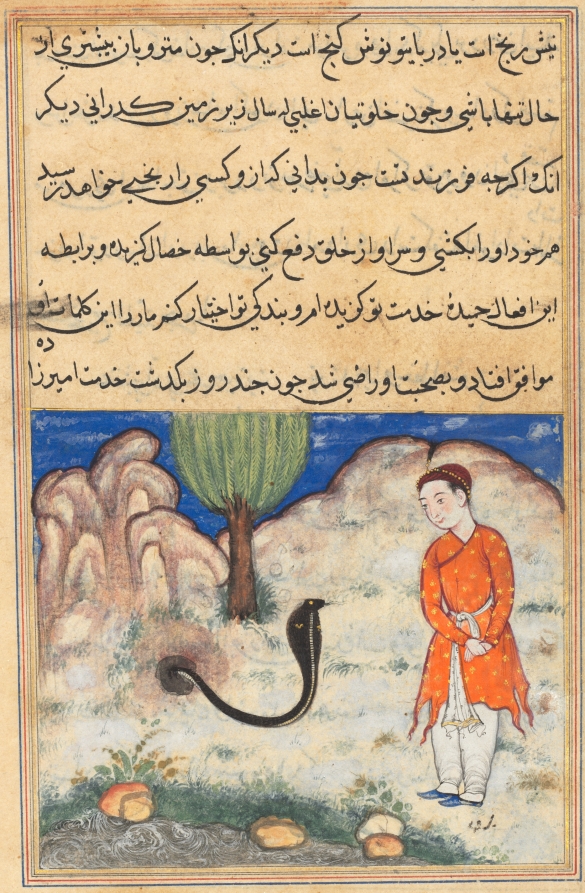 نیش ریخ است یا دریا یتو نوش کنج است دیکر انکه جون متر و بان بیشتری از
حال تنها باشی و جون خلوتیان اغلبی له سال زیر زمین کدرانی دیکر
انک اکرجه فرزند تست جون بدانی که ازو کسی را ریخی خواهد رسید
هم خود اورا بکشی و سر او از خلق دفع کنی بواسطه خصال کزیده و برابطه
این افعال حمیده خدمت تو کزیده ام و بندکی تو اختیار کنم مار را این کلمات او
ده
موافق افتاد و بصحبت او راضی شد جون جند روز بکذشت خدمت امیرزا